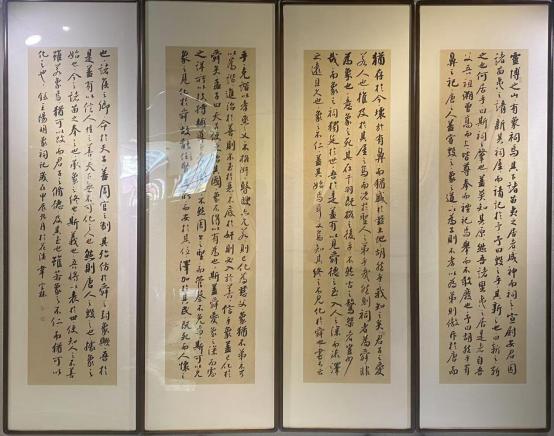 靈博之山有象祠焉其下諸苗夷之居者咸神而祠之宣慰安君因
諸苗夷之請新其祠屋而請記於予予曰毀之乎其新之也曰新之新
之也何居乎曰斯祠之肇也蓋莫知其原然吾諸蠻夷之居是者自吾
父吾祖溯曾高而上皆尊奉而禋祀焉舉而不敢廢也予曰胡然乎有
鼻之祀唐人蓋嘗毀之象之道以為子則不孝以為弟則傲斥於唐而
猶存於今壞於有鼻而猶盛於茲土也胡然乎我知之矣君子之愛
若人也推及於其屋之烏而況於聖人之弟乎哉然則祠者為舜非
為象也意象之死其在干羽既格之後乎不然古之驁桀者豈少
哉而象之祠獨延於世吾於是蓋有以見舜德之至入人之深而流澤
之遠且久也象之不仁蓋其始焉耳又烏知其終之不見化於舜也書不云
乎克諧以孝烝烝乂不格姦瞽瞍亦允若則已化為慈父象猶不弟不可
以為諧進治於善則不至於惡不底於姦則必入於善信乎象蓋已化於
舜矣孟子曰天子使吏治其國象不得以有為也斯蓋舜愛象之深而慮
之詳所以扶持輔導之者之周也不然周公之聖而管蔡不免焉斯可以見
象之見化於舜故能任賢使能而安於其位澤加於其民既死而人懷之
也諸侯之卿命於天子蓋周官之制其殆仿於舜之封象歟吾於
是蓋有以信人性之善天下無不可化之人也然則唐人之毀之也據象之
始也今之諸苗之奉之也承象之終也斯義也吾將以表於世使知人之不善
雖若象焉猶可以改而君子之修德及其至也雖若象之不仁而猶可以
化之也 錄王陽明象祠記 歲在甲辰九月於花溪 韋 林